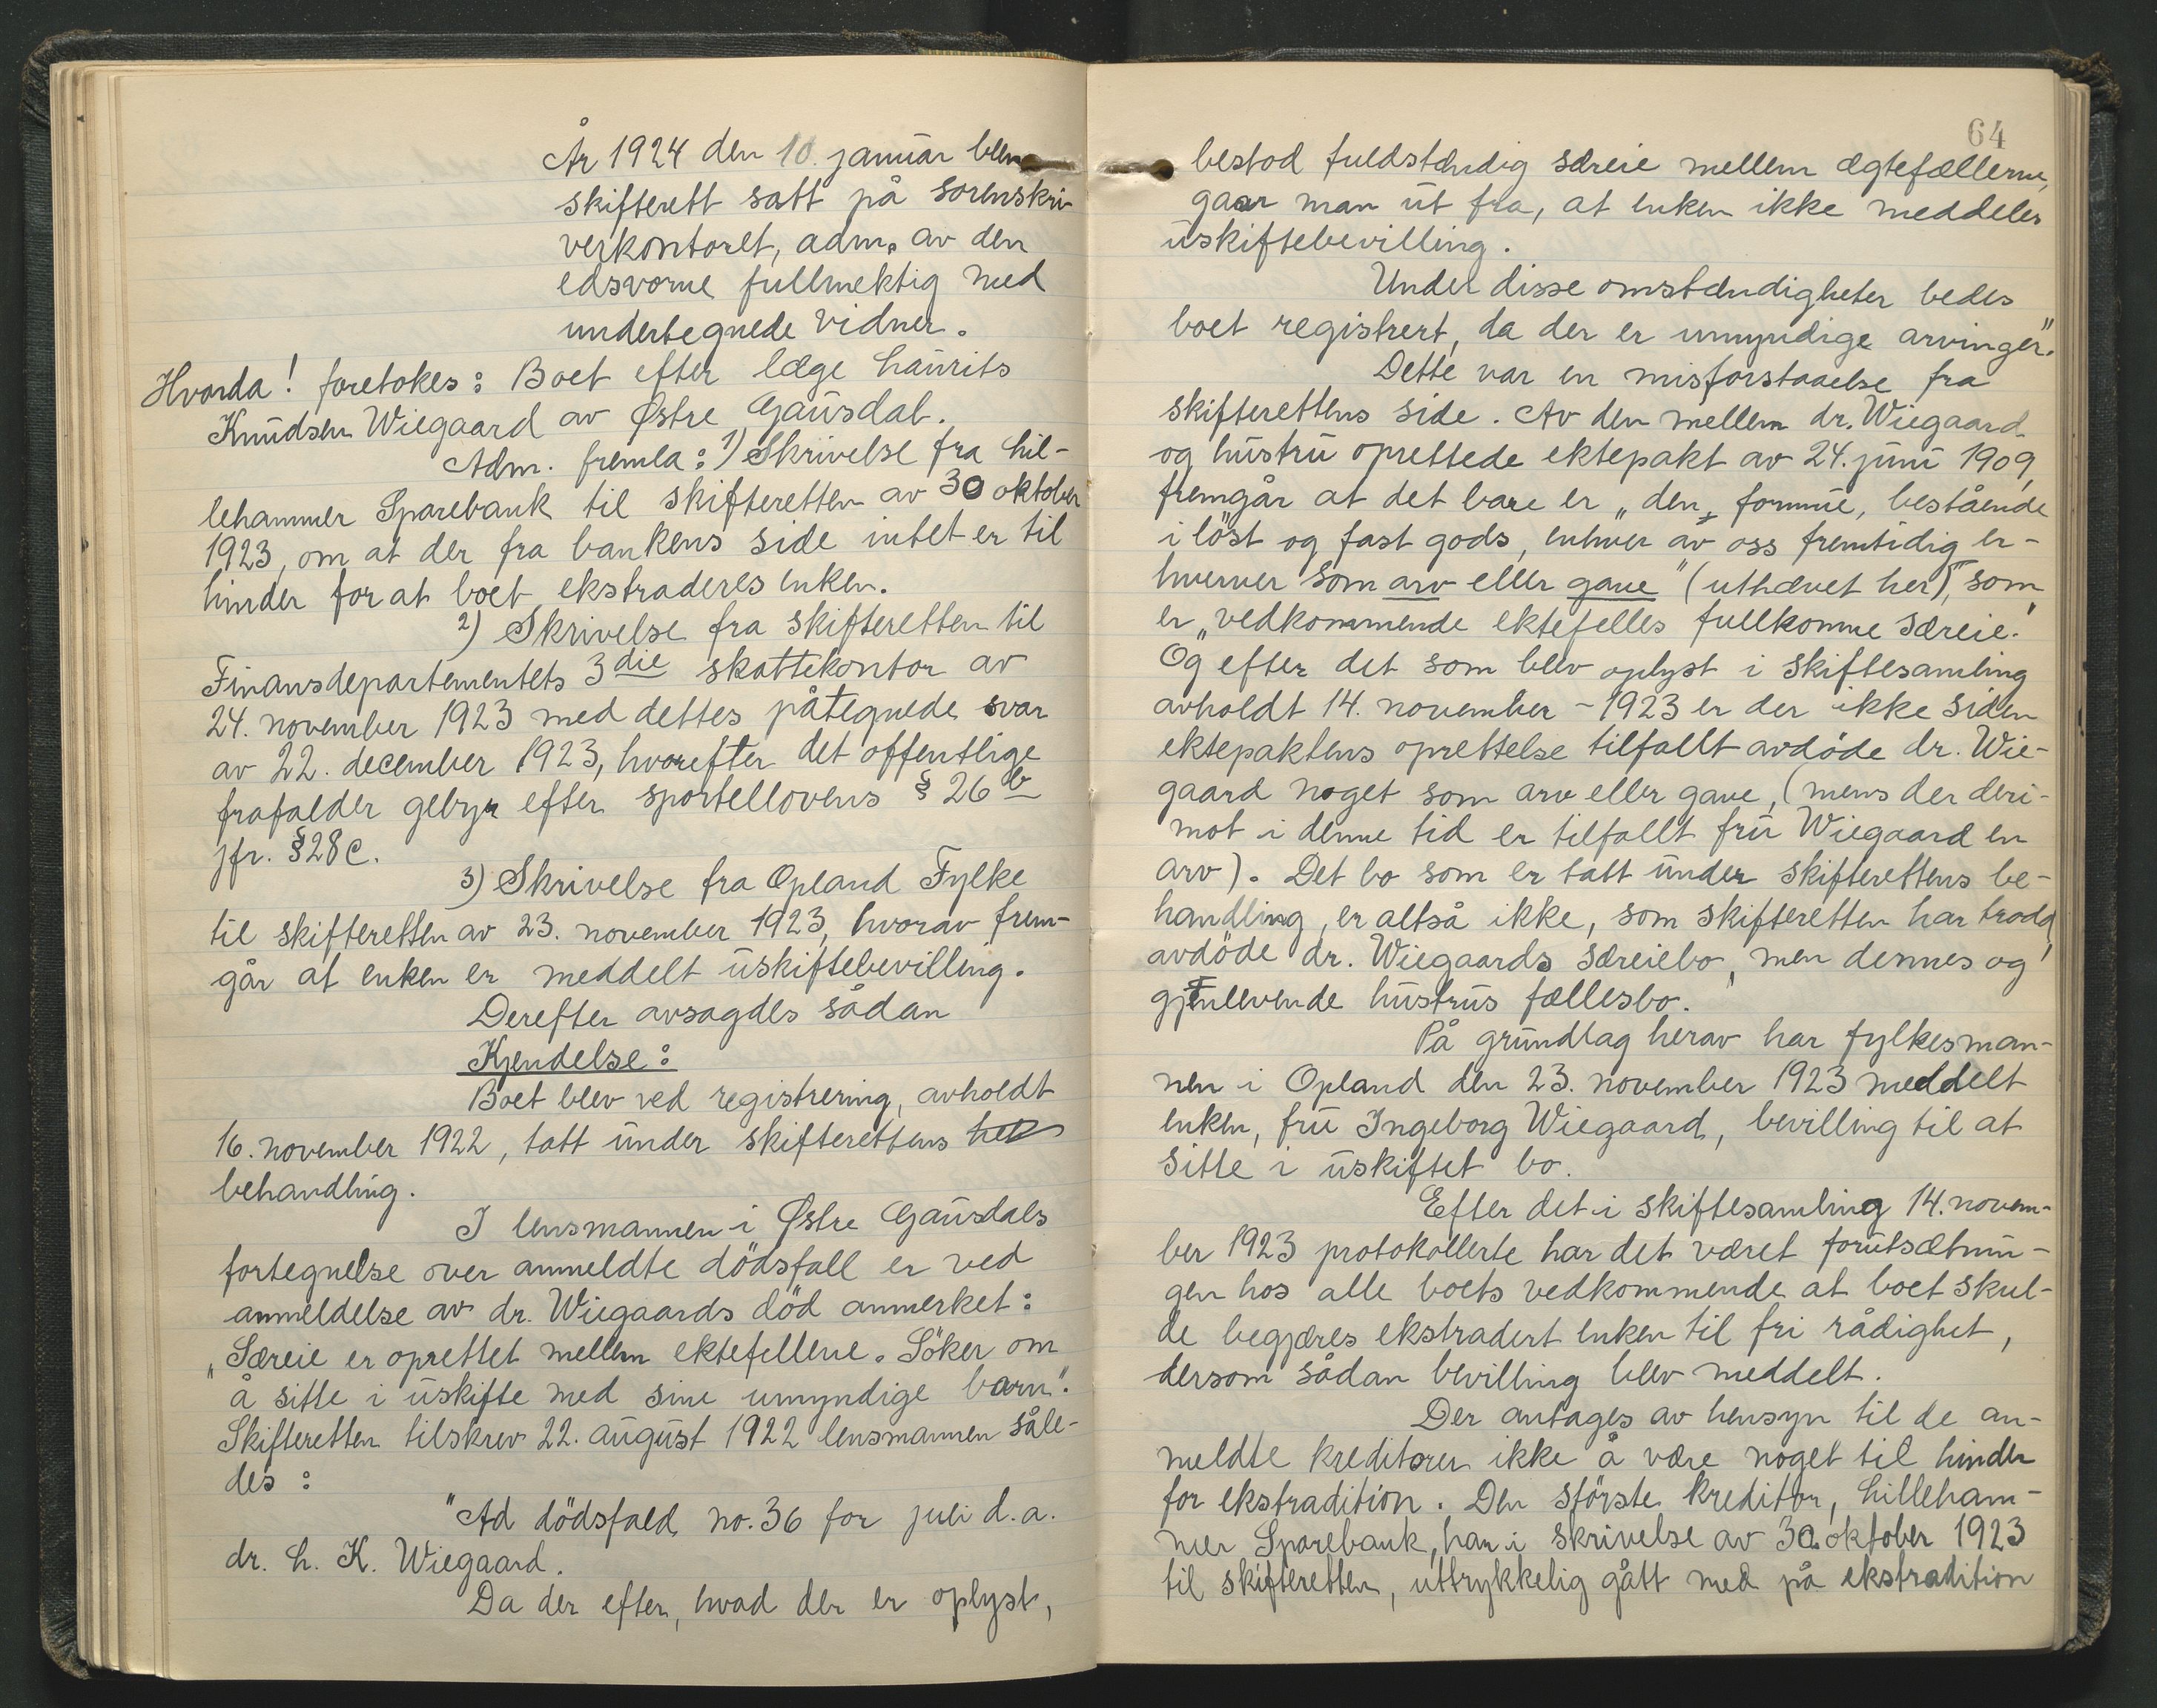 År 1924 den 10. januar blev
skifterett satt på sorenskri-
verkontoret, adm. av den
edsvorne fullmektig med
undertegnede vidner.
Hvorda! foretokes: Boet efter læge Laurits
Knudsen Wiegaard av Østre Gausdal.
Adm. fremla: 1) Skrivelse fra Lil-
lehammer Sparebank til skifteretten av 30 oktober
1923, om at der fra bankens side intet er til
hinder for at boet ekstraderes enken.
2) Skrivelse fra skifteretten til
Finansdepartementets 3die skattekontor av
24. november 1923 med dettes påtegnede svar
av 22. december 1923, hvorefter det offentlige
frafalder gebyr efter sportellovens § 26 b
jfr. § 28 c.
3) Skrivelse fra Opland Fylke
til skifteretten av 23. november 1923, hvorav frem-
går at enken er meddelt uskiftebevilling.
Derefter avsagdes sådan
Kjendelse:
Boet blev ved registrering, avholdt
16. november 1922, tatt under skifterettens
behandling.
I lensmannen i Østre Gausdals
fortegnelse over anmeldte dödsfall er ved
anmeldelse av dr. Wiegaards död anmerket:
„Særeie er oprettet mellem ektefellene. Söker om
å sitte i uskifte med sine umyndige barn".
Skifteretten tilskrev 22. august 1922 lensmannen såle-
des:
"Ad dödsfald no. 36 for juli d.a.
dr. L. K. Wiegaard.
Da der efter, hvad der er oplyst,
64
bestod fuldstændig særeie mellem ægtefællerne,
gaar man ut fra, at enken ikke meddeles
uskiftebevilling.
Under disse omstændigheter bedes
boet registrert, da der er umyndige arvinger".
Dette var en misforstaaelse fra
skifterettens side. Av den mellem dr. Wiegaard
og hustru oprettede ektepakt av 24. juni 1909,
fremgår at det bare er „den formue, bestående
i löst og fast gods, enhver av oss fremtidig er-
hverver som arv eller gave" (uthævet her), som
er „vedkommende ektefelles fullkomne særeie."
Og efter det som blev oplyst i skiftesamling
avholdt 14. november - 1923 er der ikke siden
ektepaktens oprettelse tilfallt avdöde dr. Wie-
gaard noget som arv eller gave, (mens der deri-
mot i denne tid er tilfallt fru Wiegaard en
arv). Det bo som er tatt under skifterettens be-
handling, er altså ikke, som skifteretten har trodd,
avdöde dr. Wiegaards særeiebo, men dennes og
gjenlevende hustrus fællesbo.
På grundlag herav har fylkesman-
nen i Opland den 23. november 1923 meddelt
enken, fru Ingeborg Wiegaard, bevilling til at
sitte i uskiftet bo.
Efter det i skiftesamling 14. novem-
ber 1923 protokollerte har det været forutsætnin-
gen hos alle boets vedkommende at boet skul-
de begjæres ekstradert enken til fri rådighet,
dersom sådan bevilling blev meddelt.
Der antages av hensyn til de an-
meldte kreditorer ikke å være noget til hinder
for ekstradition. Den störste kreditor, Lilleham-
mer Sparebank, har i skrivelse av 30. oktober 1923
til skifteretten, uttrykkelig gått med på ekstradition